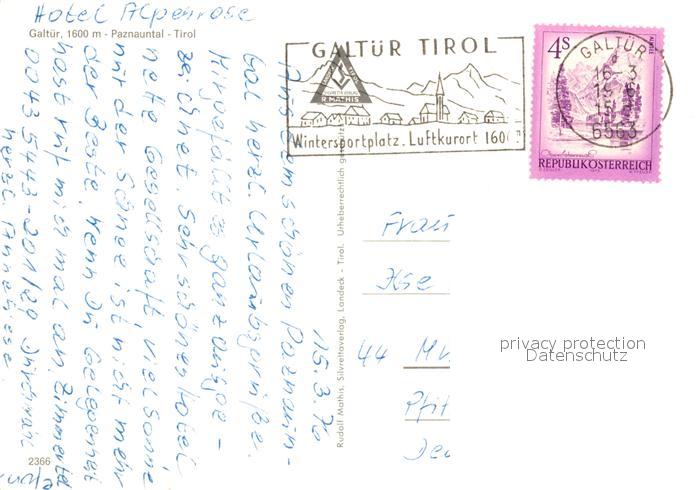 Hotel Alpenrose
Galtür, 1600 m - Paznauntal - Tirol
GALTÜR TIROL
R. MATHIS
Wintersportplatz. Luftkurort 160
4S
GALTÜR
16-3
6563
REPUBLIK ÖSTERREICH
15.3.76
Aus dem schönen Paznaun-
tal herzl. Urlaubsgrüße.
Mir gefällt es ganz ausge-
zeichnet. Sehr schönes Hotel
nette Gesellschaft, viel Sonne
nur der Schnee ist nicht mehr
der Beste. Wenn Du Gelegenheit
hast ruf mich mal an, Zimmertel
0043 5443-201/29 Durchwahl
herzl. Anneliese
Rudolf Mathis, Silvrettaverlag, Landeck - Tirol. Urheberrechtlich geschützt
Frau
Ilse
44
privacy protection
Datenschutz
2366